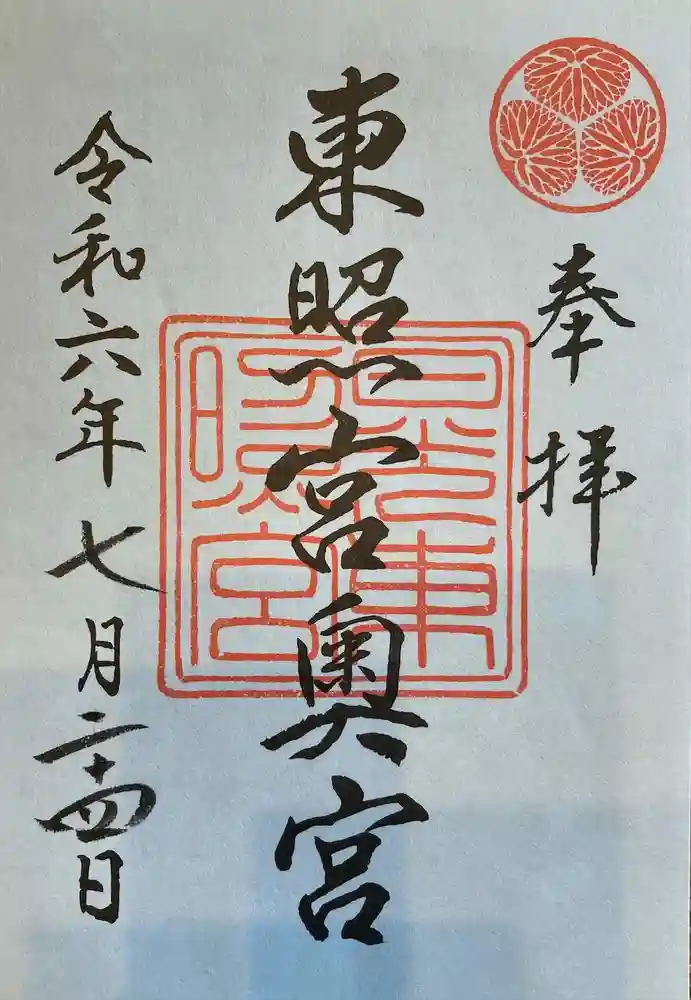 奉拝
東照宮奥宮
令和六年七月二十四日
日光東照宮